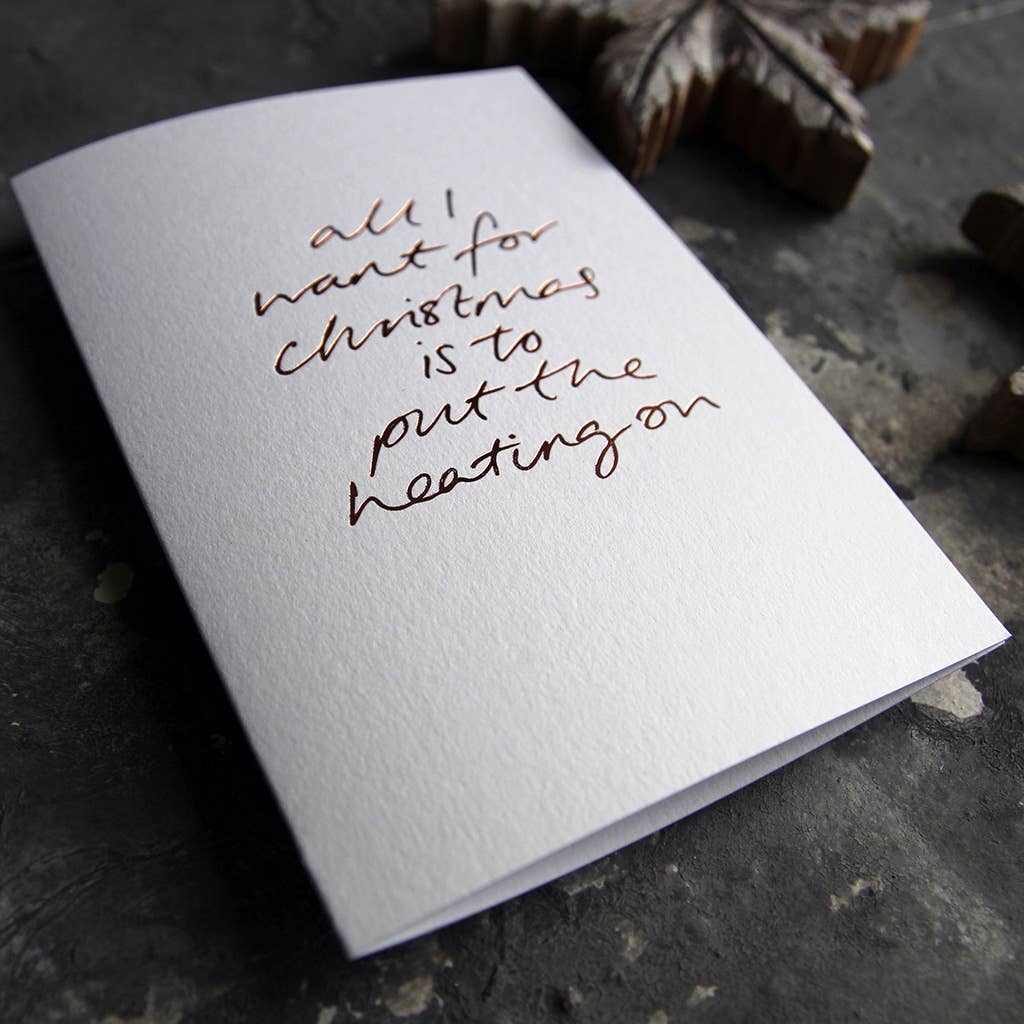 all I
want for
christmas
is to
put the
heating on